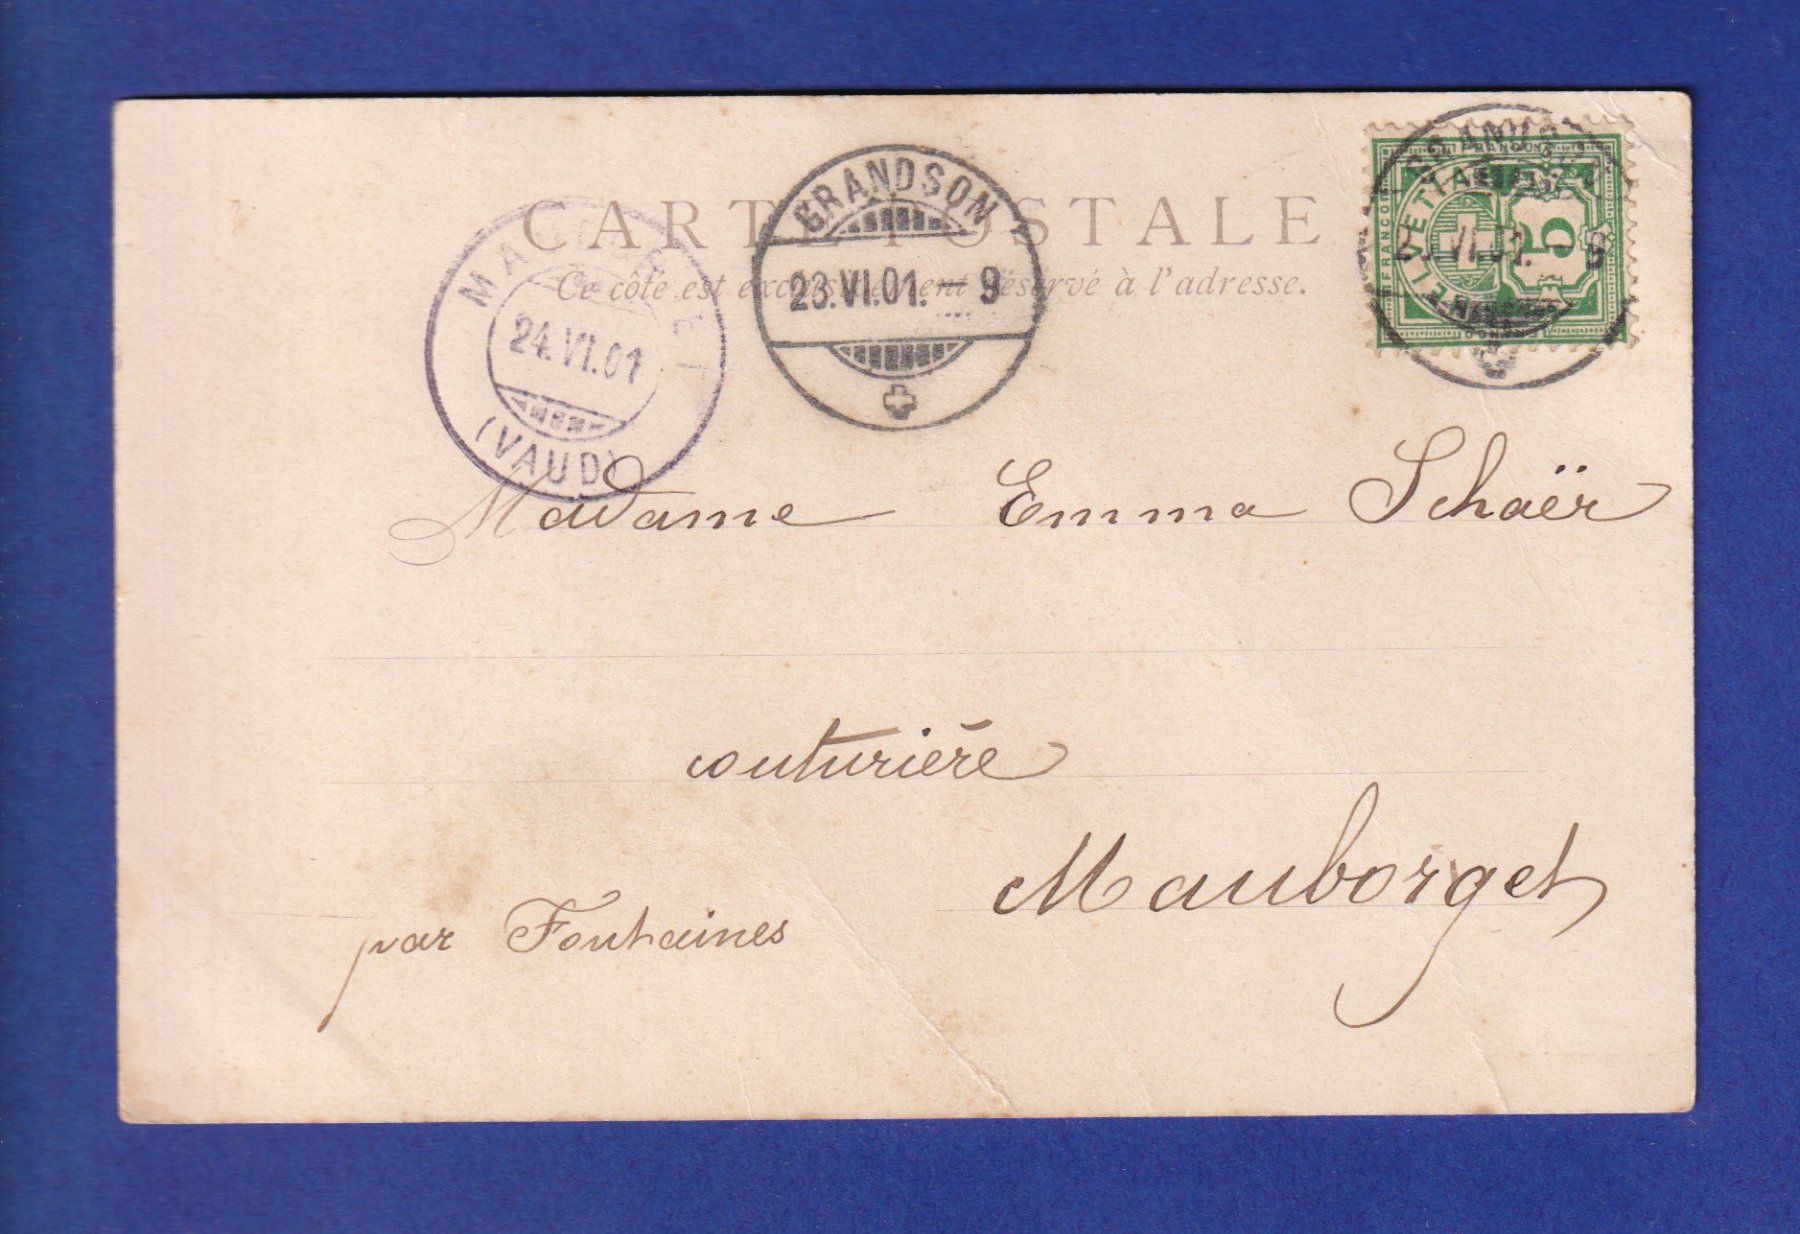 CARTE POSTALE
Ce côté est exclusivement réservé à l'adresse.
MAUBORGET
24.VI.01
(VAUD)
GRANDSON
23.VI.01. – 9
FRANCO
HELVETIA
5
VI.01. – 9
Madame Emma Schaër
couturière
Mauborget
par Fontaines